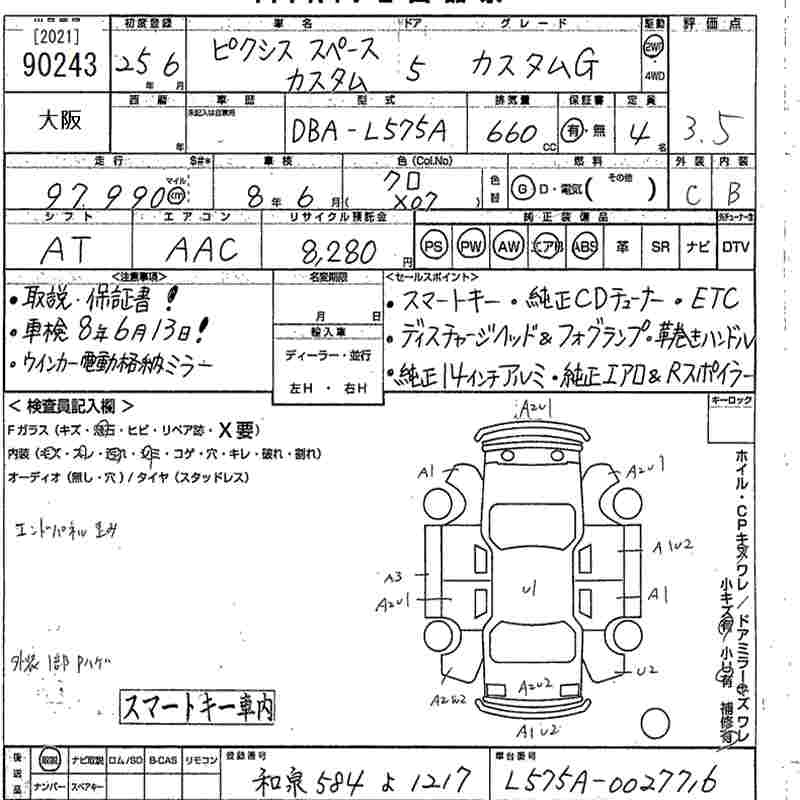 初度登録 車名 ドア グレード 駆動 評価点
[2021]
90243 25年 6月 ピクシス スペース カスタム 5 カスタムG 2WD・4WD 3.5
大阪 西暦 年 車歴 未記入は自家用 型式 排気量 保証書 定員
DBA-L575A 660cc 有・無 4名
走行 S#* 車検 色(Col.No) 燃料 外装 内装
97,990 マイル km 8年 6月 クロ (X07) 色替 G D・電気( その他 ) C B
シフト エアコン リサイクル預託金 純正装備品
AT AAC 8,280円 PS PW AW エアB ABS 革 SR ナビ DTV
<注意事項> 名変期限 <セールスポイント>
・取説・保証書! 月 日 ・スマートキー・純正CDチューナー・ETC
・車検8年6月13日! 輸入車 ・ディスチャージヘッド&フォグランプ・革巻きハンドル
・ウインカー電動格納ミラー ディーラー・並行 ・純正14インチアルミ・純正エアロ&Rスポイラー
左H・右H
<検査員記入欄> キーロック
Fガラス(キズ・飛石・ヒビ・リペア跡・X要)
内装(キズ・スレ・汚れ・シミ・コゲ・穴・キレ・破れ・割れ)
オーディオ(無し・穴)/タイヤ(スタッドレス)
A2U1
A1 A2U1
エンドパネル歪み
A1U2
A3 U1
A2U1 A1
外装1部Pハゲ
U2
A2U2
A2W2
A1U2
スマートキー車内
ホイル・CPキズワレ/ドアミラーキズワレ
小キズ有/小凹有 補修有
後送品 取説 ナビ取説 ロム/SD B-CAS リモコン 登録番号 車台番号
ナンバー スペアキー 和泉 584 よ 1217 L575A-0027716